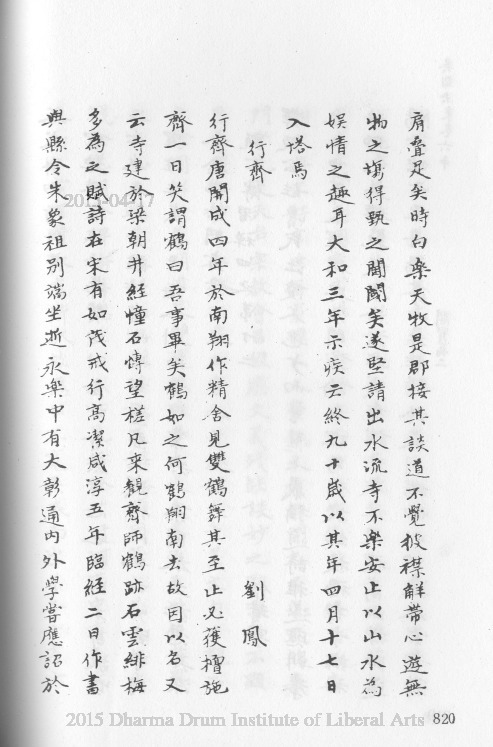 肩疊足矣時白樂天牧是郡接其談道不覺披襟解帶心遊無
物之場得甄之閫閾矣遂堅請出水流寺不樂安止以山水為
娛情之趣耳大和三年示疾云終九十歲以其年四月十七日
入塔焉
行齊
劉鳳
行齊唐開成四年於南翔作精舍見雙鶴舞其至止必獲檀施
齊一日笑謂鶴曰吾事畢矣鶴如之何鶴翔南去故因以名又
云寺建於梁朝井經幢石博望槎凡來觀齊師鶴跡石雲緋梅
多為之賦詩在宋有如茂戒行高潔咸淳五年臨經二日作書
與縣令朱象祖別端坐逝永樂中有大彰通內外學嘗應詔於
820
2015-04-17
2015 Dharma Drum Institute of Liberal Arts